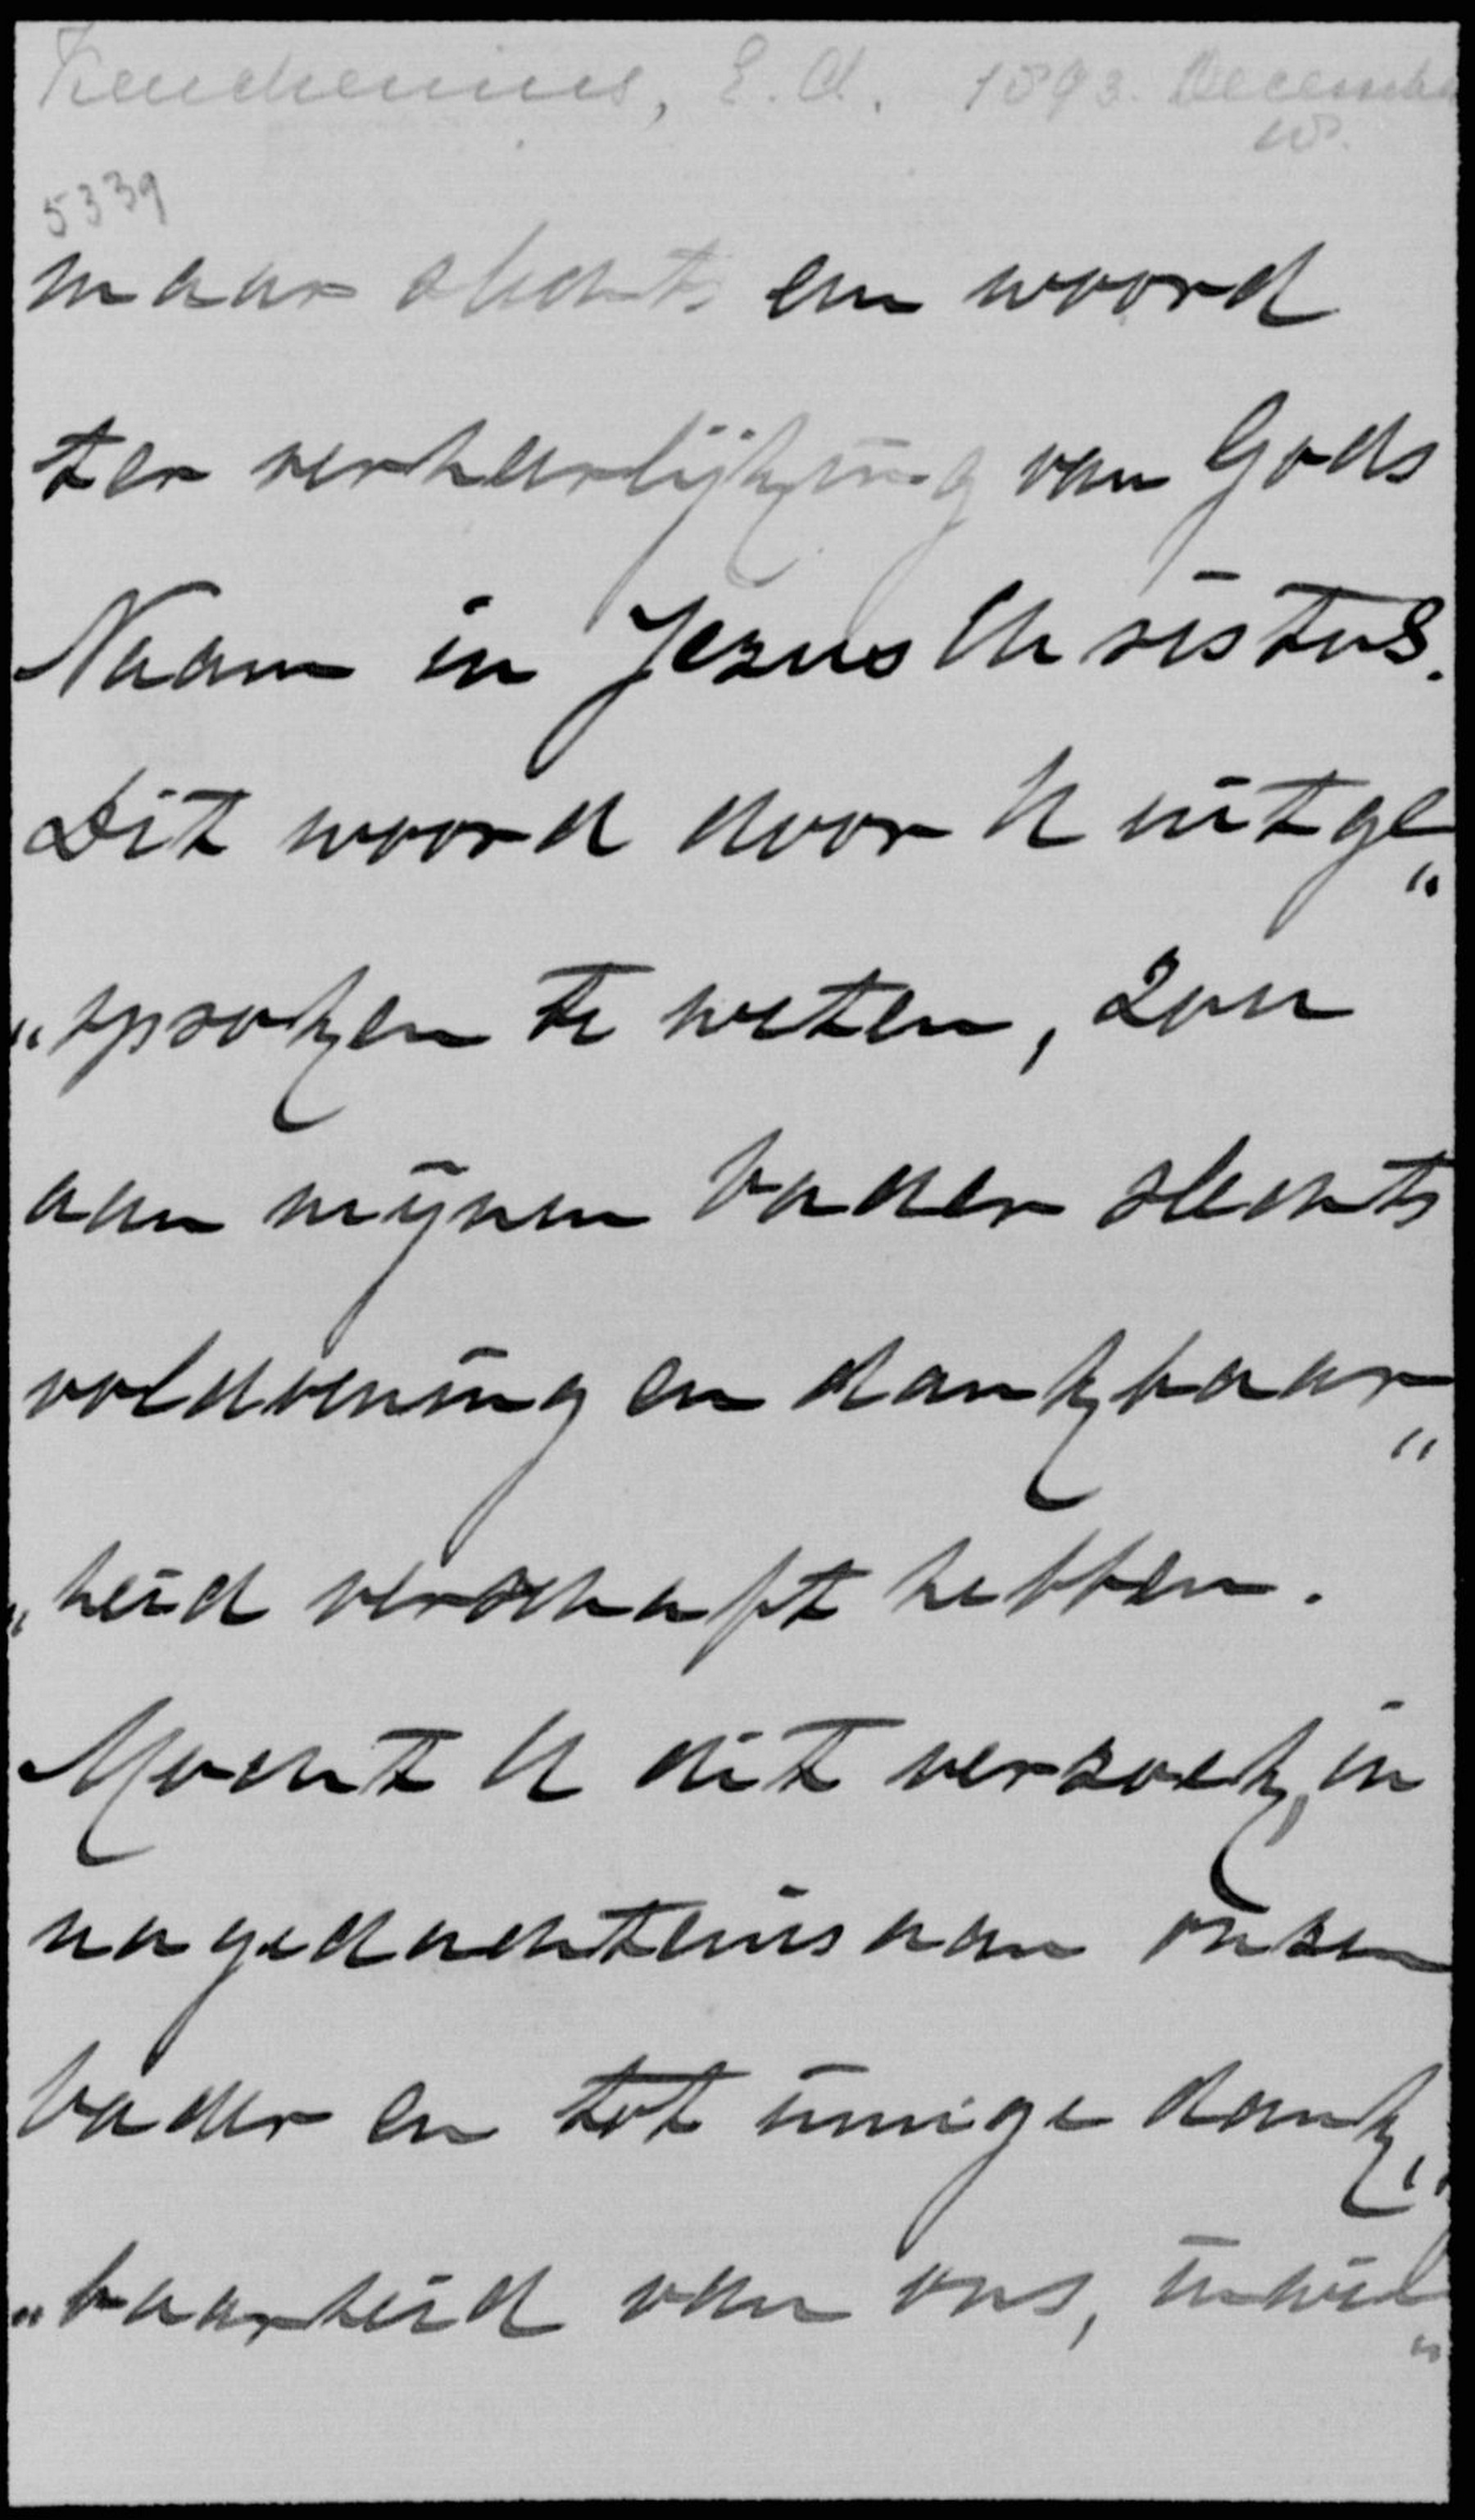 Keuchenius, E. A. 1893. December
5339
maar slechts een woord
ter verheerlijking van Gods
Naam in Jezus Christus.
Dit woord door U uitge„
„sproken te weten, zou
aan mijnen Vader slechts
voldoening en dankbaar„
„heid verschaft hebben.
Mocht U dit verzoek, in
nagedachtenis aan onzen
Vader en tot innige dank„
„baarheid van ons, inwil„